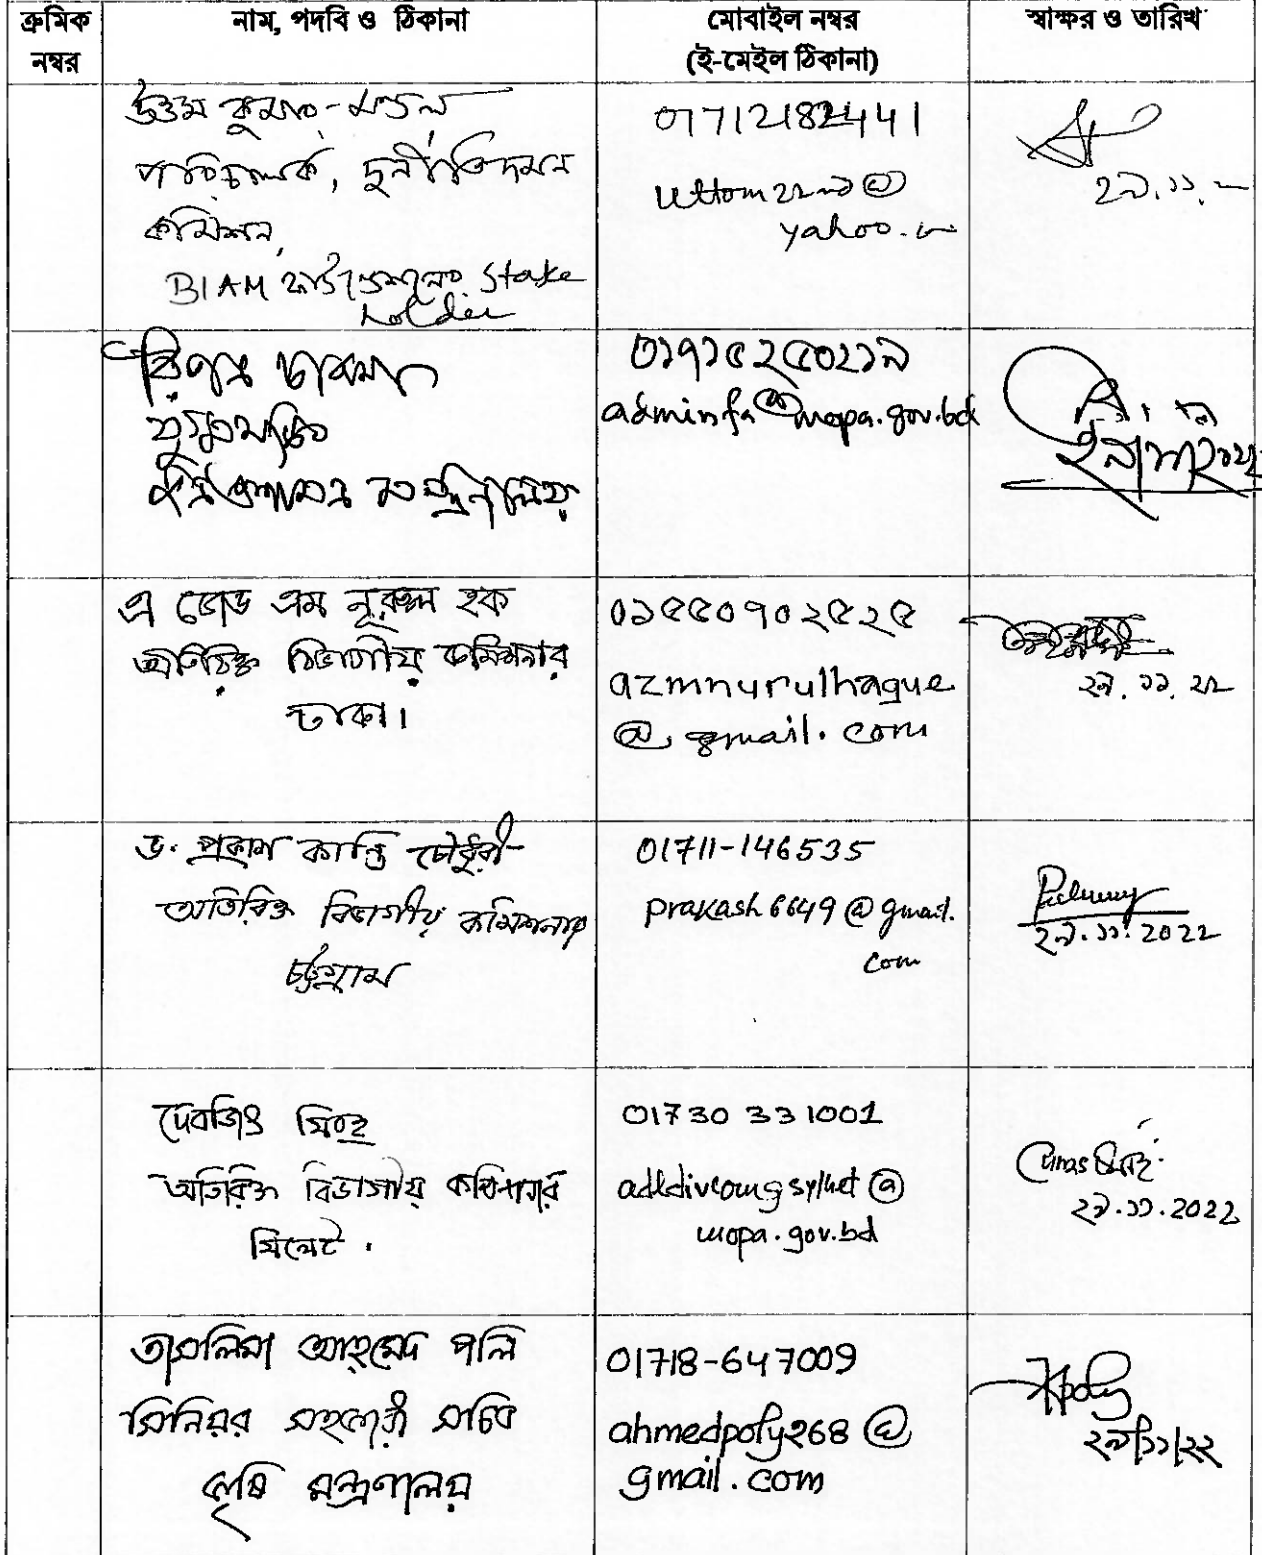 ক্রমিক নম্বর
নাম, পদবি ও ঠিকানা
মোবাইল নম্বর
(ই-মেইল ঠিকানা)
স্বাক্ষর ও তারিখ
উত্তম কুমার মন্ডল
পরিচালক, দুর্নীতি দমন
কমিশন,
BIAM ফাউন্ডেশনের Stake
holder
01712182441
uttom22nd@
yahoo.
২৯.১১.
যুগ্মসচিব
জনপ্রশাসন মন্ত্রণালয়
০১৭১৫২৫০২১৯
adminfa@mopa.gov.bd
এ জেড এম নূরুল হক
অতিরিক্ত বিভাগীয় কমিশনার
ঢাকা।
০১৫৫০৭০২৫২৫
azmnurulhaque
@gmail.com
২৯.১১.২২
ড. প্রকাশ কান্তি চৌধুরী
অতিরিক্ত বিভাগীয় কমিশনার
চট্টগ্রাম
01711-146535
prakash6649@gmail.
com
২৯.১১.2022
দেবজিৎ সিংহ
অতিরিক্ত বিভাগীয় কমিশনার
সিলেট.
01730 331001
@
mopa.gov.bd
২৯.১১.2022
তাসলিমা আহমেদ পলি
সিনিয়র সহকারী সচিব
কৃষি মন্ত্রণালয়
01718-647009
ahmedpoly268@
gmail.com
২৯/১১/২২